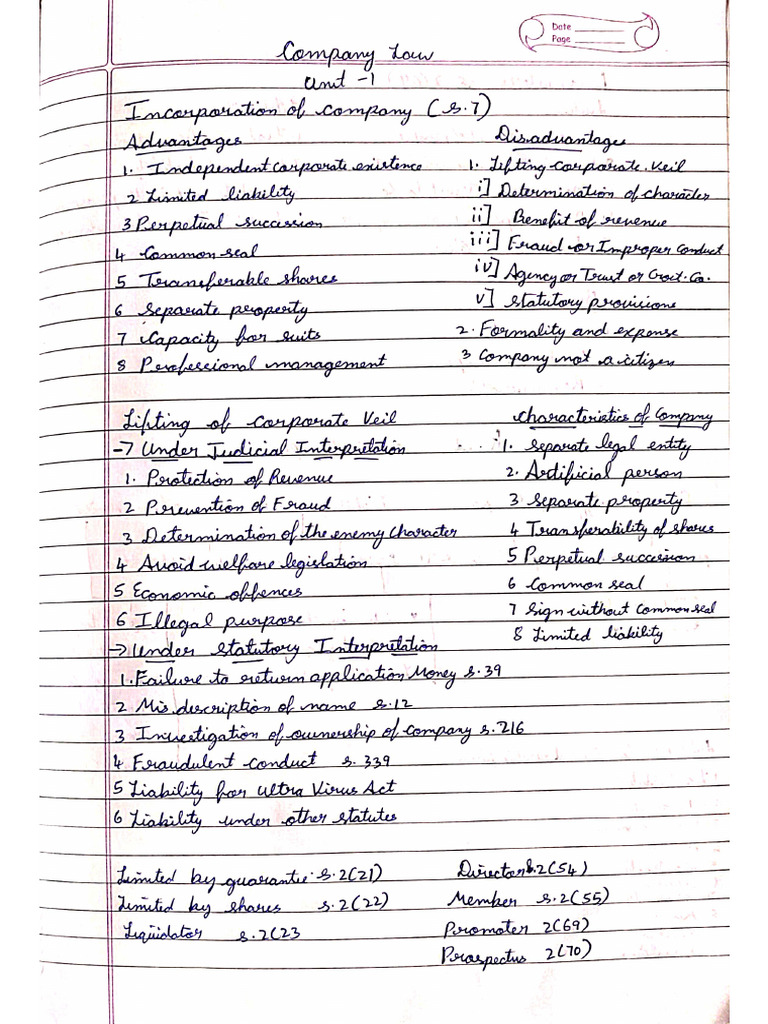 Date
Page
Company Law
Unit -1
Incorporation of company (s.7)
Advantages
1. Independent corporate existence
2 Limited liability
3 Perpetual succession
4 Common seal
5 Transferable shares
6 Separate property
7 Capacity for suits
8 Professional management
Disadvantages
1. Lifting corporate veil
i] Determination of character
ii] Benefit of revenue
iii] Fraud or Improper Conduct
iv] Agency or Trust or Govt. Co.
v] Statutory provisions
2. Formality and expense
3 Company not a citizen
Lifting of corporate Veil
→ Under Judicial Interpretation
1. Protection of Revenue
2 Prevention of Fraud
3 Determination of the enemy character
4 Avoid welfare legislation
5 Economic offences
6 Illegal purpose
→ Under statutory Interpretation
1. Failure to return application Money s.39
2 Mis description of name s.12
3 Investigation of ownership of company s.216
4 Fraudulent conduct s.339
5 Liability for ultra Virus Act
6 Liability under other statutes
Characteristics of Company
1. Separate legal entity
2. Artificial person
3 Separate property
4 Transferability of shares
5 Perpetual succession
6 Common seal
7 Sign without common seal
8 Limited liability
Limited by guarantie s.2(21)
Limited by shares s.2(22)
Liquidator s.2(23
Director s.2(54)
Member s.2(55)
Promoter 2(69)
Prospectus 2(70)